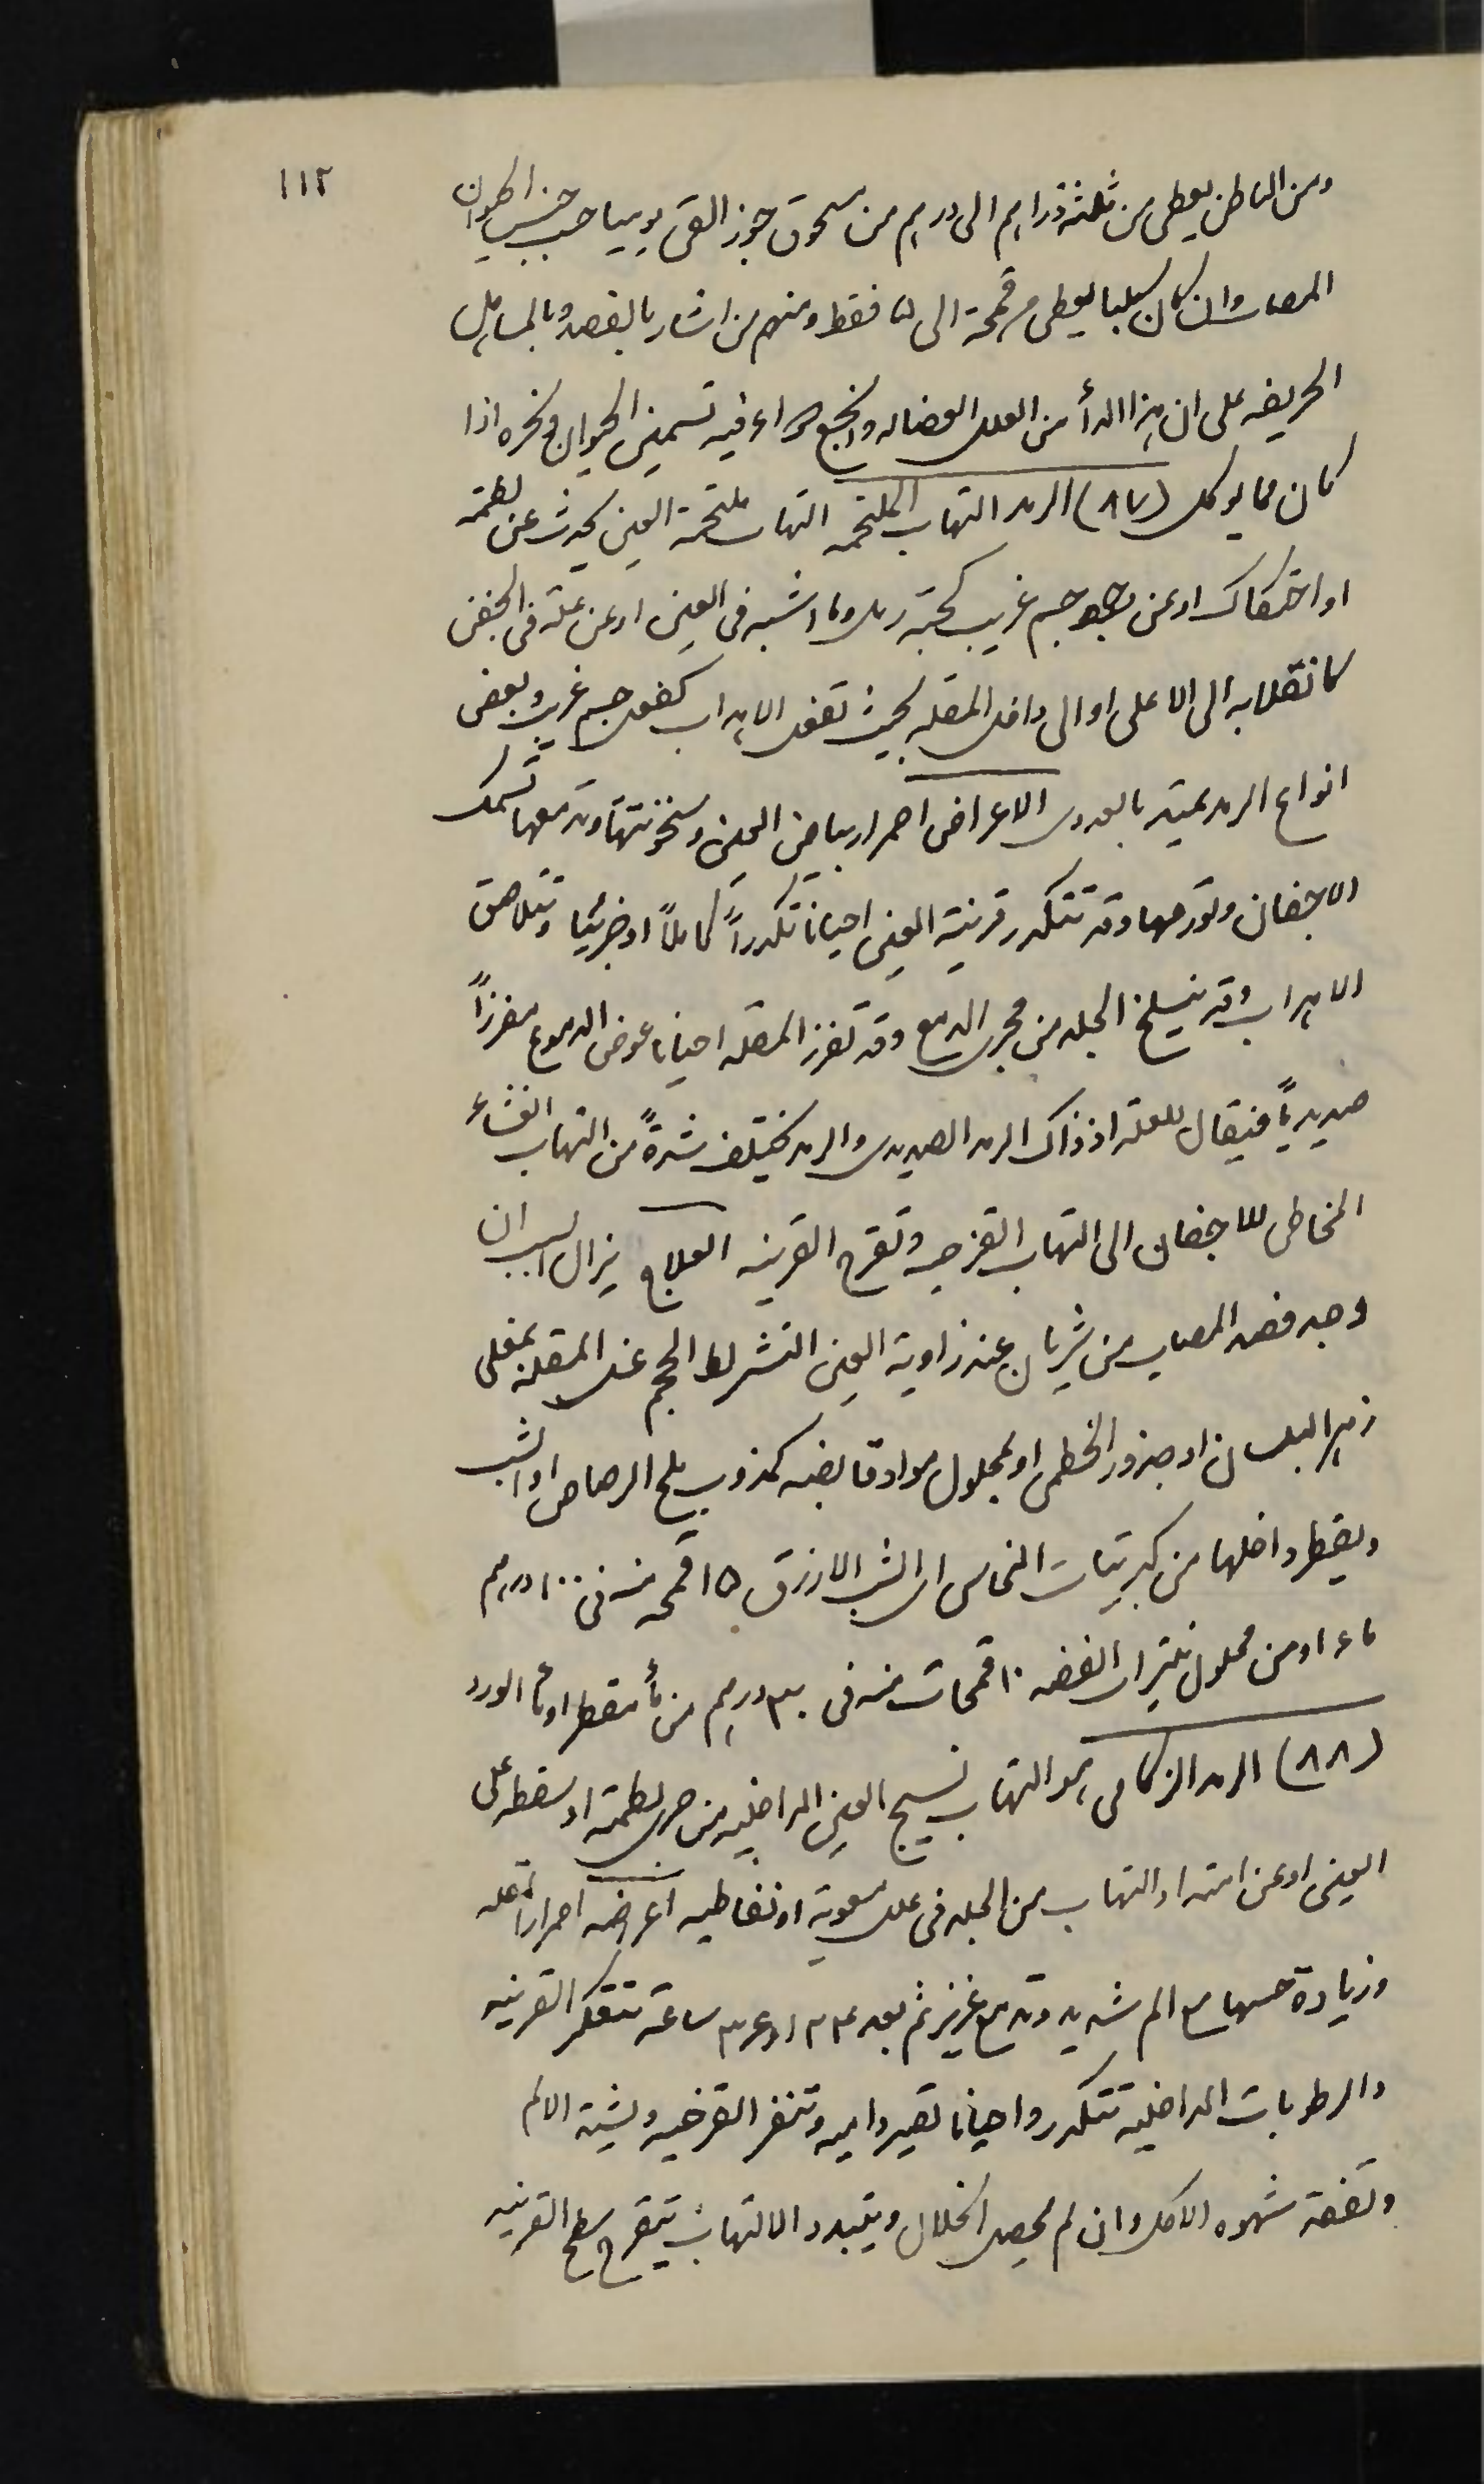 ١١٢
ومن الباطن يعطى من ثلثة دراهم الى درهم من مسحوق جوز القى يوميا حسب جنس الحيوان
المصاب وان كان كلبا يعطى من قمحة الى فقط ومنهم من اشار بالفصد وبالمسايل
الحريفه على ان هذا الدأ من العلل العضاله وانجع دواء فيه تسمين الحيوان ونحره اذا
كان مما يوكل (٨٧) الرمد التهاب الملتحمه التهاب ملتحمة العين يحدث عن لطمة
او احتكاك او عن جسم غريب كحبة رمل وما اشبه فى العين او عن علة فى الجفن
كانقلابه الى الاعلى او الى داخل المقله بحيث تفعل الاهداب كفعل جسم غريب وبعض
انواع الرمد يمتد بالعدوى الاعراض احمرار بياض العين وسخونتها وتدمعها تسمك
الاجفان وتورمها وقد تتكدر قرنية العين احيانا تكدراً كاملاً او جزئيا وتتلاصق
الاهداب وقد ينسلخ الجلد من مجرى الدمع وقد تفرز المقله احيانا عوض الدموع مفرزاً
صديدياً فيقال للعلة اذ ذاك الرمد الصديدى والرمد يختلف شدةً من التهاب الغشاء
المخاطى للاجفان الى التهاب القزحيه وتقرح القرنيه العلاج يزال السبب ان
وجد فصد المصاب من شريان عند زاوية العين التشريط الحجم غسل المقلة بمغلى
زهر البلسان او جذور الخطمى او بمحلول مواد قابضه كمذوب ملح الرصاص او الشب
ويقطر داخلها من كبريتات النحاس اى الشب الازرق ١٥ قمحه منه فى ١٠٠ درهم
ماء او من محلول نيترات الفضه ١٠ قمحات منه فى ٣٠ درهم من مأ مقطر او مأ الورد
(٨٨) الرمد الزكامى هو التهاب نسيج العين الداخليه من جرى لطمة او سقطه على
العين او عن امتداد التهاب من الجلد فى علل معوية او نفاطيه اعراضه احمرار المقله
وزيادة حسها مع الم شديد وتدمع غزير ثم بعد ٢٤ او ٣٤ ساعة تتعكر القرنيه
والرطوبات الداخليه تتكدر واحيانا تصير داميه وتتغير القزحيه ويشتد الالم
وتفقد شهوه الاكل وان لم يحصل انحلال ويتبدد الالتهاب يتقرح سطح القرنيه